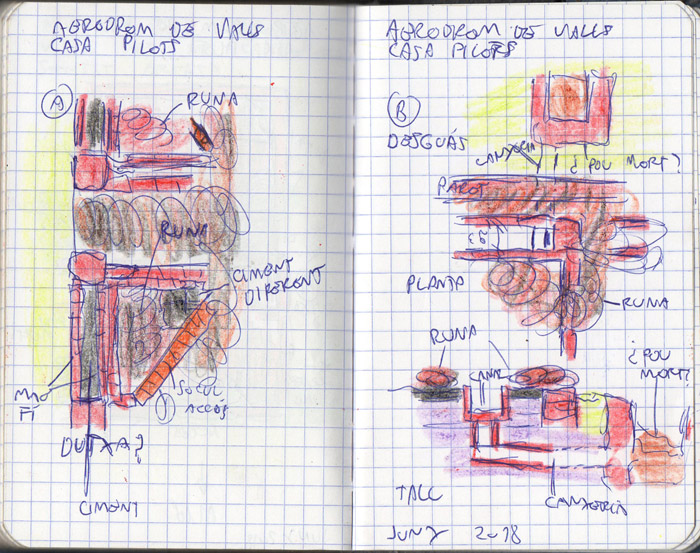 AERODROM DE VALLS
CASA PILOTS
A
RUNA
RUNA
CIMENT
DIFERENT
MAÓ
FI
SÒCOL
ACCÉS
DUTXA?
CIMENT
AERODROM DE VALLS
CASA PILOTS
B
DESGUÀS
CANYERIA
¿POU MORT?
PARET
PLANTA
RUNA
RUNA
CANAL
¿POU
MORT?
TALL
CANYERIA
JUNY 2018